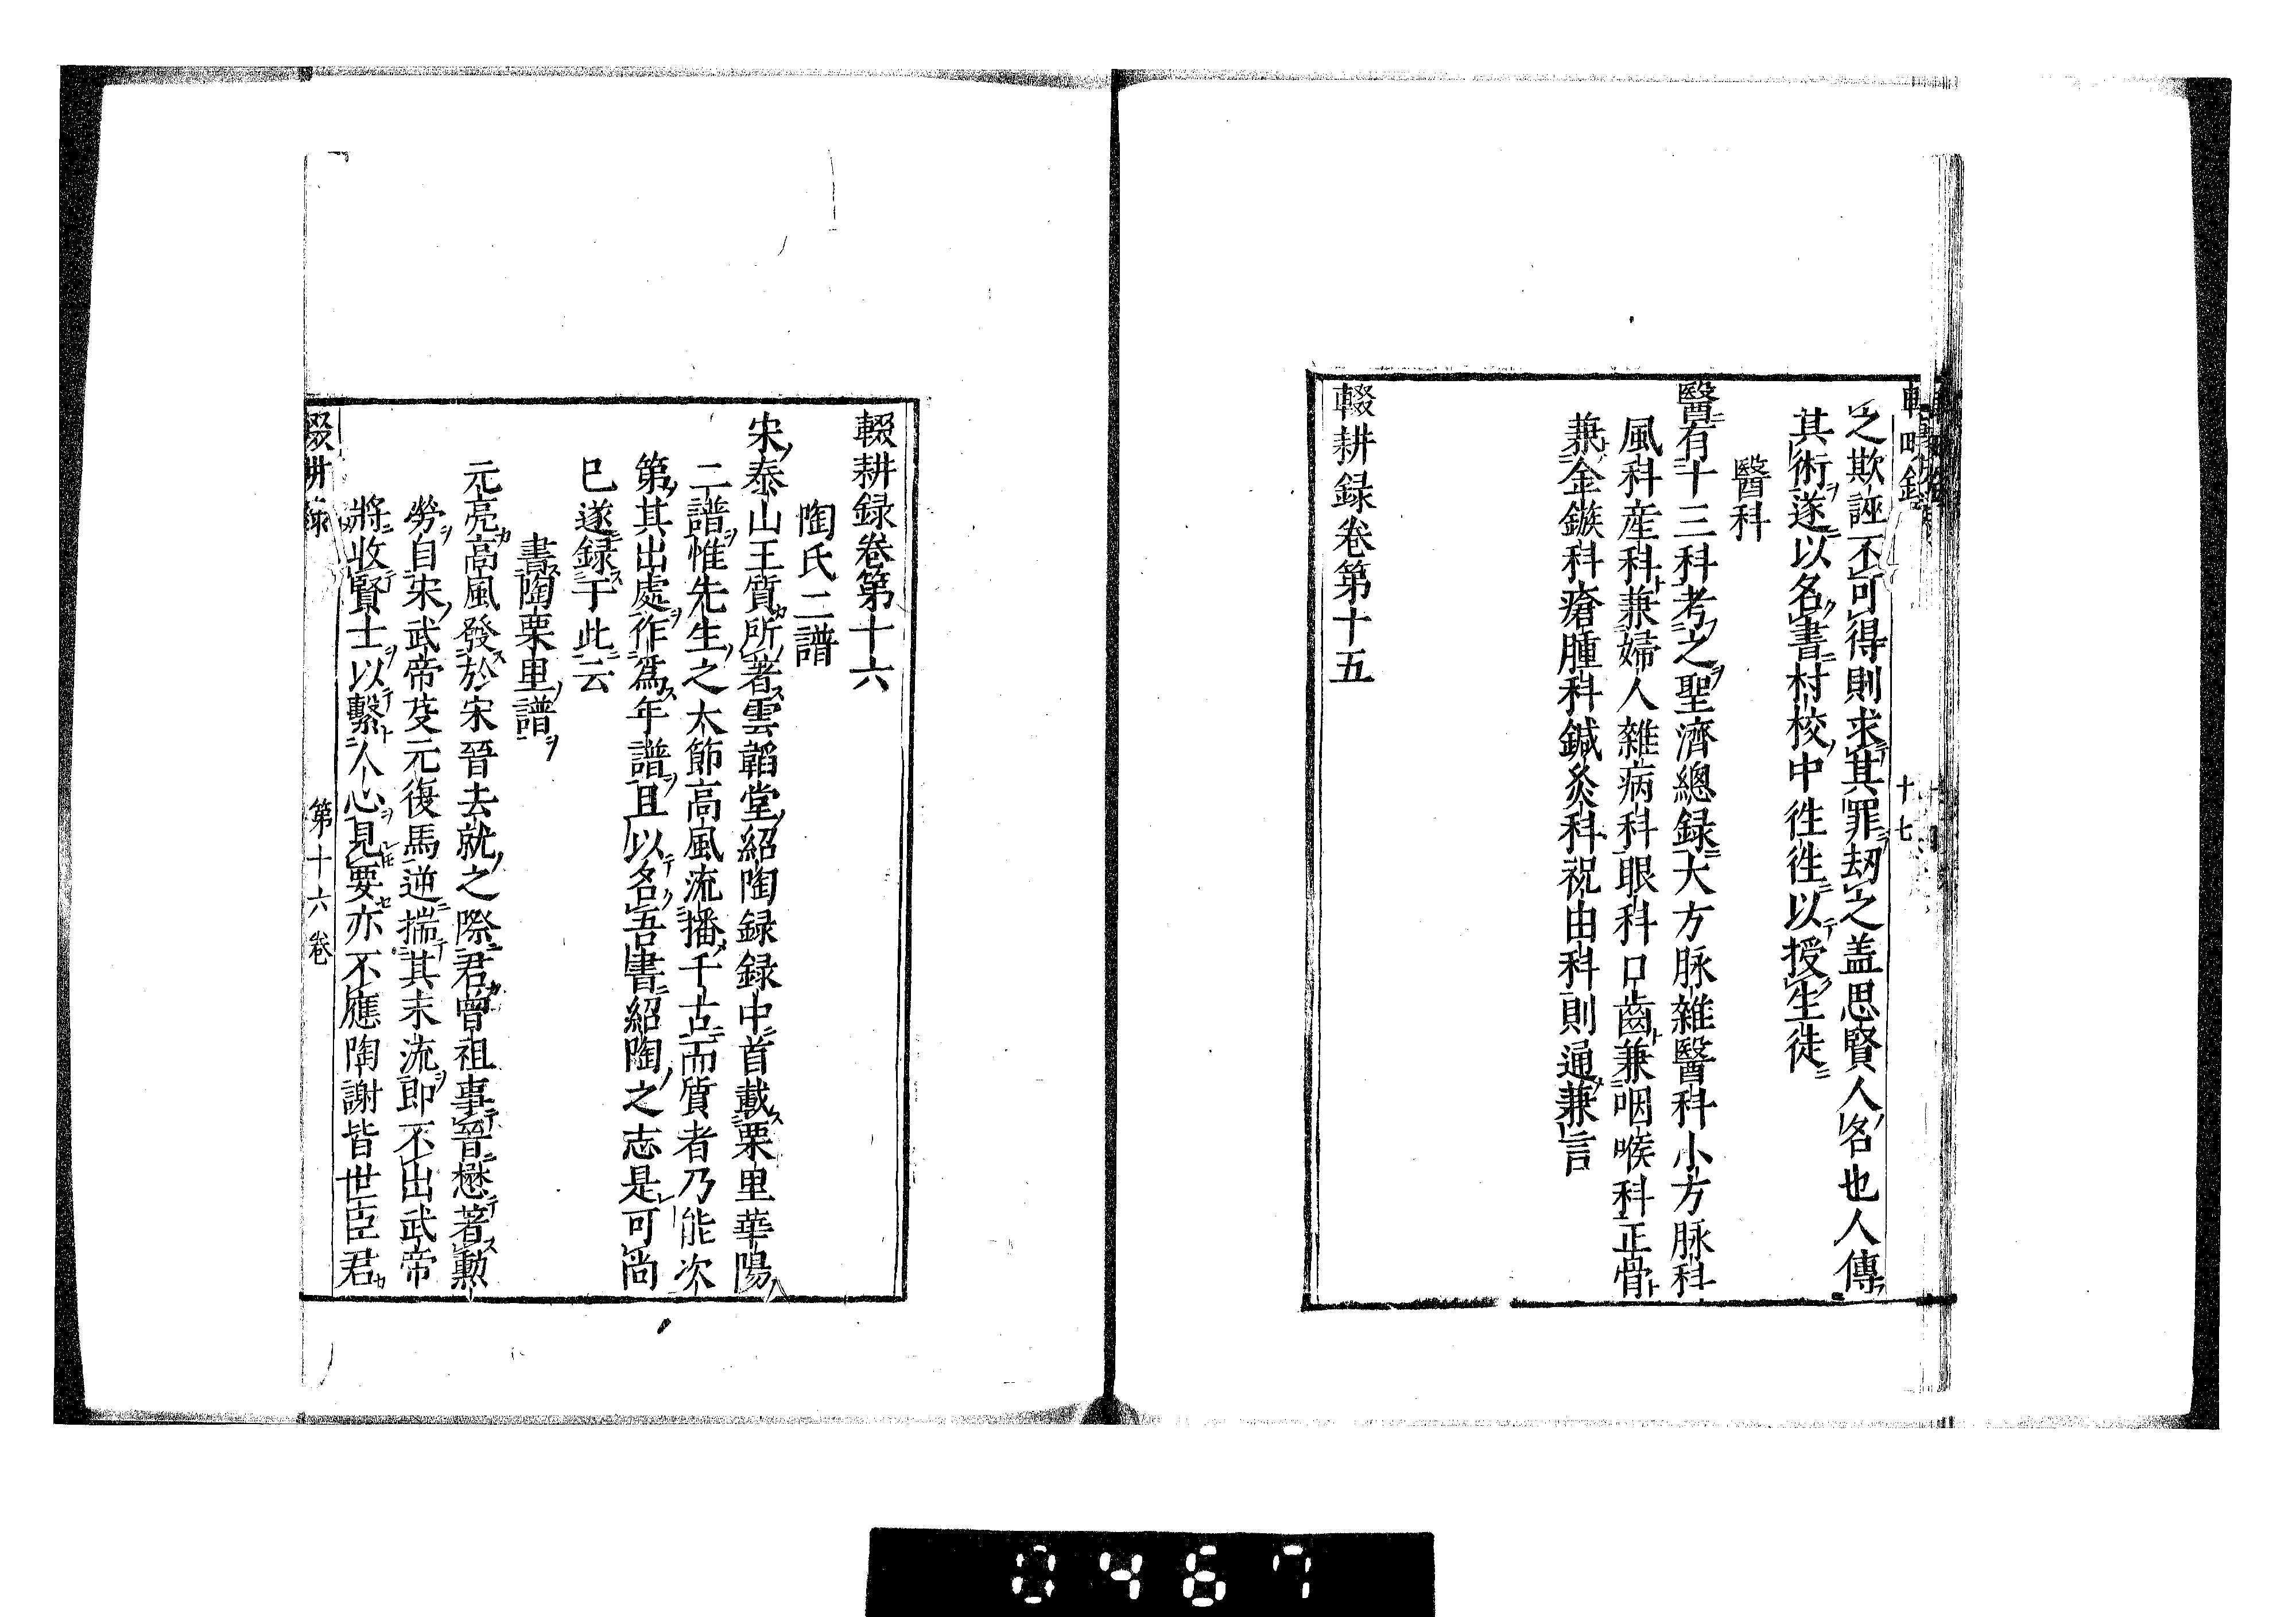 之欺誣不可得則求其罪劫之盖思賢人名也人傳
其術遂以名書村校中徃徃以授生徒
醫科
醫有十三科考之聖濟總録大方脉雜醫科小方脉科
風科産科兼婦人雜病科眼科口齒兼咽喉科正骨
兼金鏃科瘡腫科鍼灸科祝由科則通兼言
輟耕録卷第十五
十七
輟耕録卷第十六
陶氏二譜
宋泰山王質所著雲韜堂紹陶録録中首載栗里華陽
二譜惟先生之大節高風流播千古而質者乃能次
第其出處作爲年譜且以名吾書紹陶之志是可尚
已遂録于此云
書陶栗里譜
元亮高風發於宋晉去就之際君曾祖事晉懋著勲
勞自宋武帝芟元復馬逆揣其末流即不出武帝
將收賢士以繫人心見要亦不應陶謝皆世臣君
輟耕録
第十六卷
0467